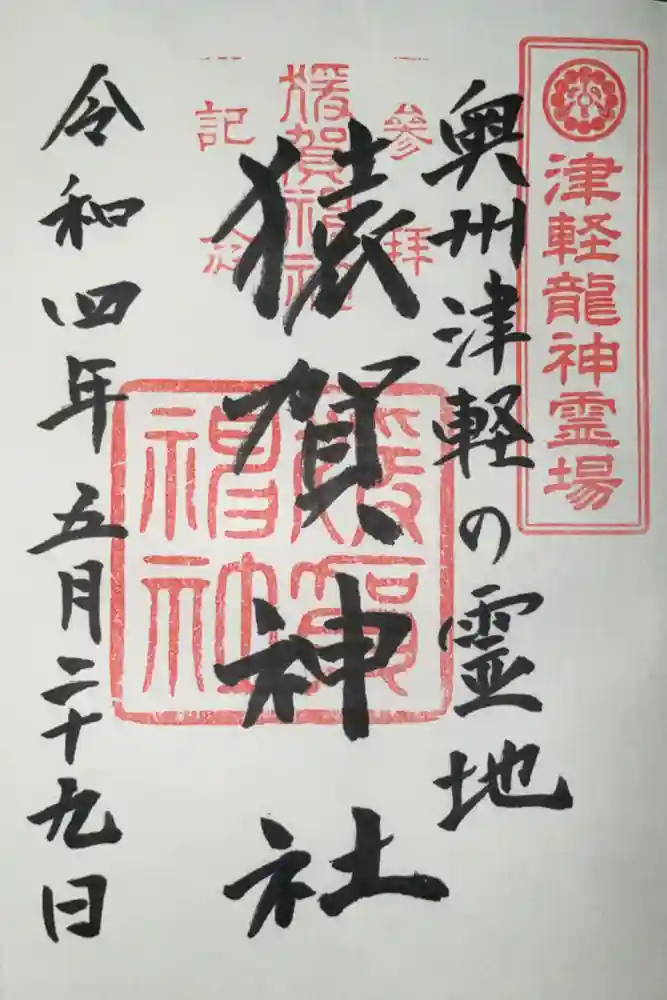 津軽龍神霊場
奥州津軽の霊地
参拝
猿賀神社
猿賀神社
記念
猿賀
神社
令和四年五月二十九日